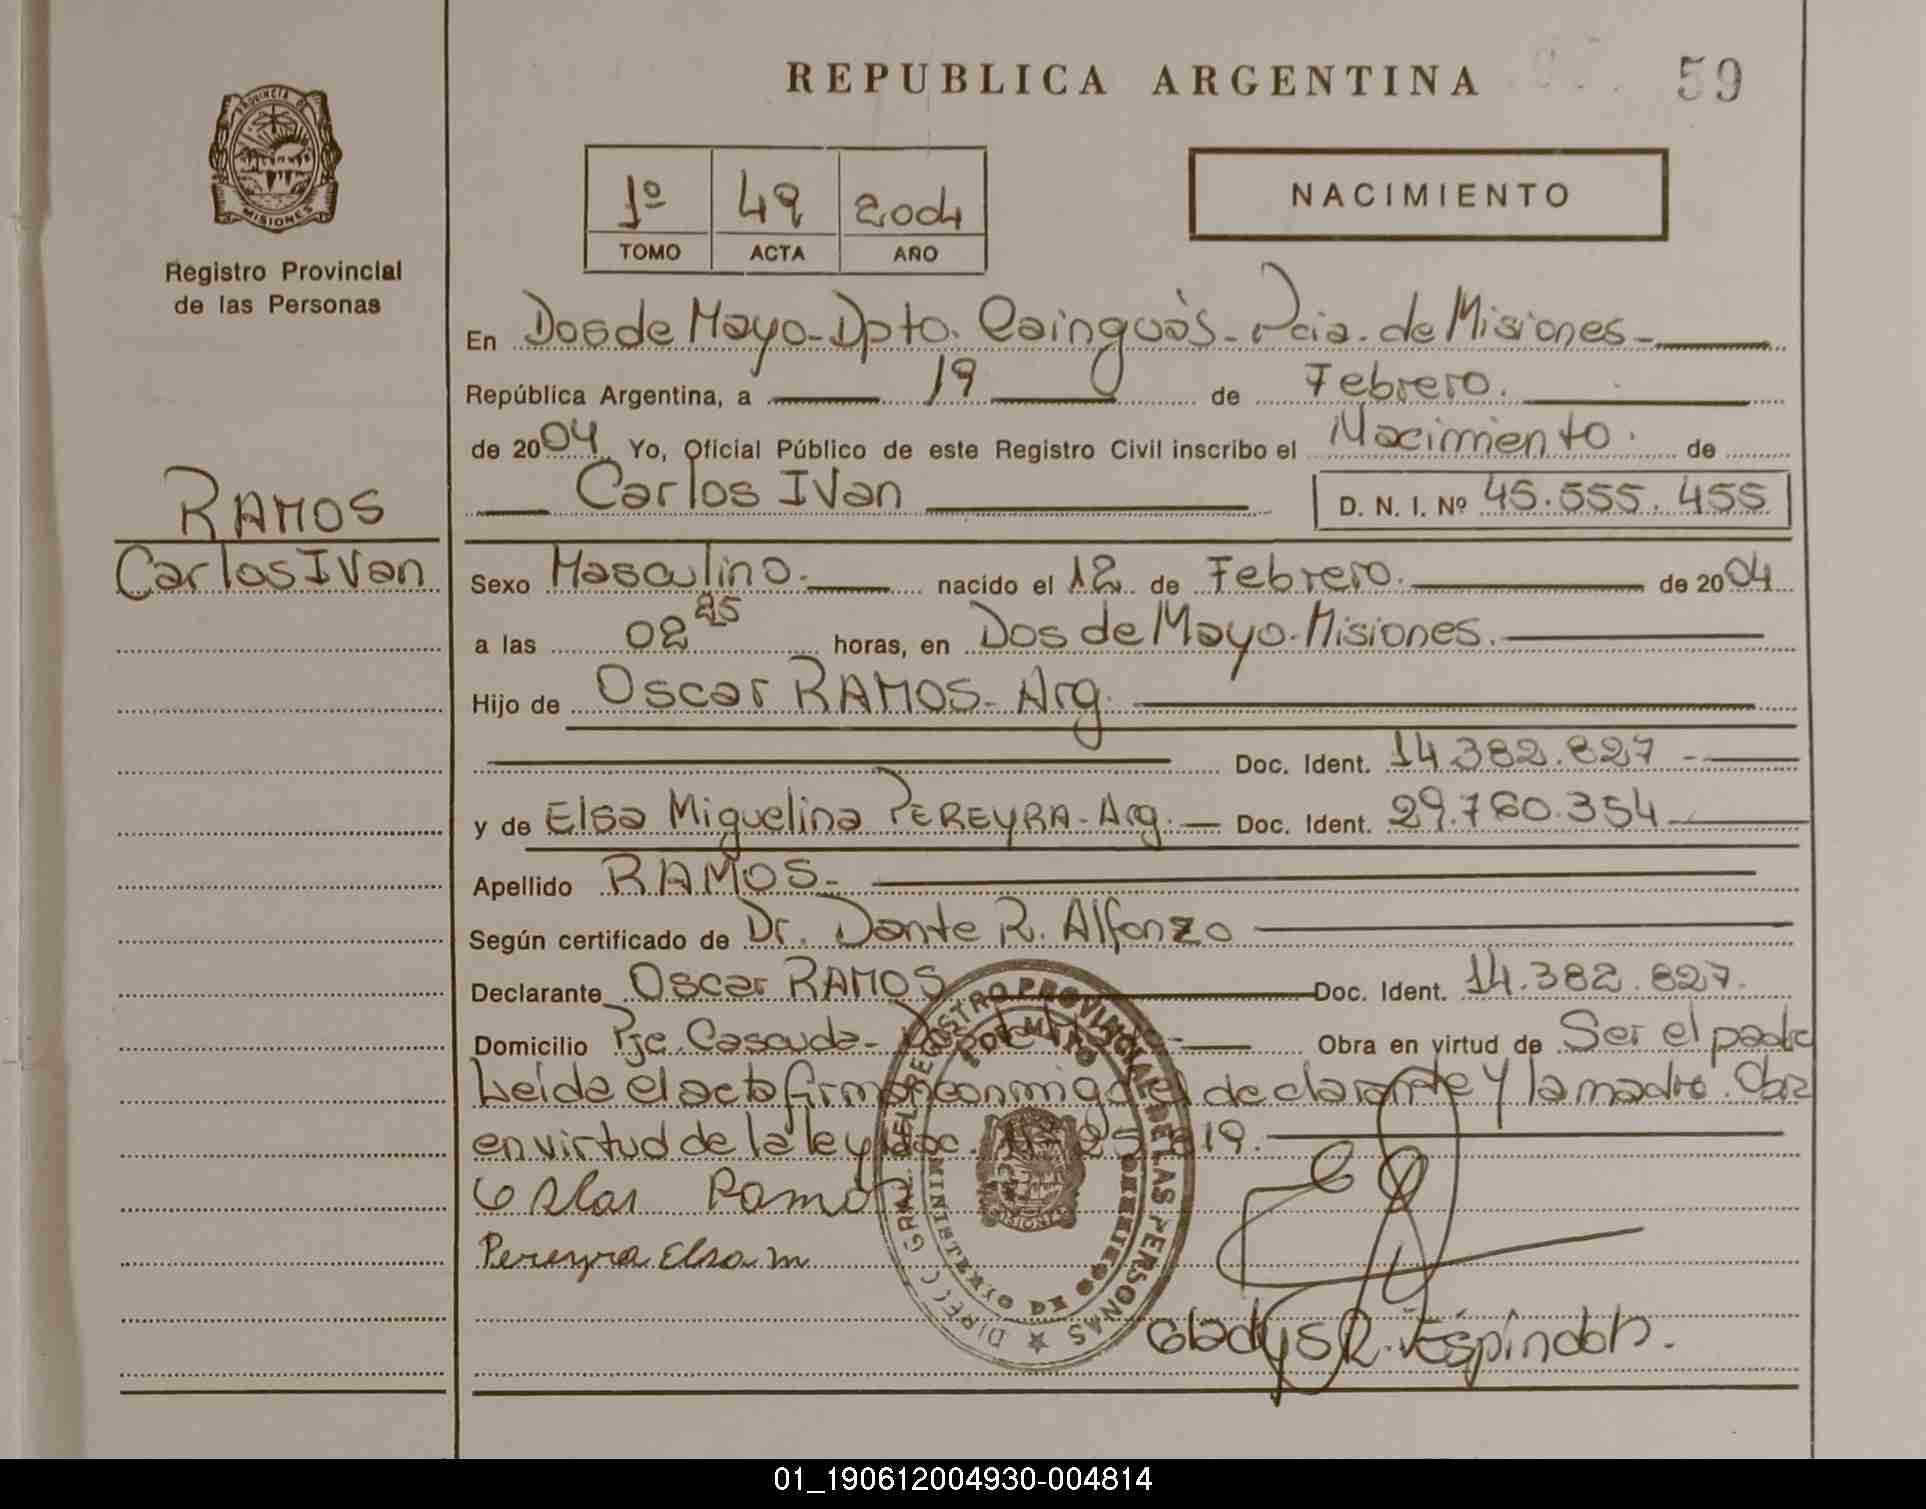 REPUBLICA ARGENTINA
59
PROVINCIA DE
MISIONES
Registro Provincial
de las Personas
1º 49 2004
TOMO ACTA AÑO
NACIMIENTO
En Dos de Mayo-Dpto. Cainguàs-Pcia. de Misiones-
República Argentina, a 19 de Febrero.
de 2004 Yo, Oficial Público de este Registro Civil inscribo el Nacimiento. de
Carlos IVan D. N. I. Nº 45.555.455
RAMOS
Carlos IVan
Sexo Masculino. nacido el 12 de Febrero. de 2004
a las 02 25 horas, en Dos de Mayo-Misiones.
Hijo de Oscar RAMOS- Arg.
Doc. Ident. 14.382.827 -
y de Elsa Miguelina PEREYRA-Arg. Doc. Ident. 29.760.354
Apellido RAMOS-
Según certificado de Dr. Dante R. Alfonzo
Declarante Oscar RAMOS Doc. Ident. 14.382.827.
Domicilio Pje. Obra en virtud de Ser el padre
Leida el acta firman conmigo el declarante y la madre. Obra
en virtud de la ley
Oscar Ramos
Pereyra Elsa m
DIREC. GRAL. DEL REGISTRO PROVINCIAL DE LAS PERSONAS
MINISTERIO DE GOBIERNO
MISIONES
Gladys R. Espíndola.
01_190612004930-004814